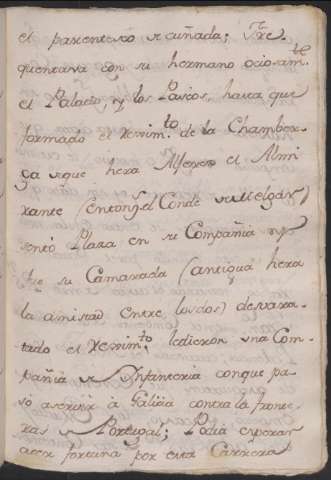 el parentesco de cuñada; Fre-
quentava con su hermano ociosam.te
el Palacio, y los Passos, hasta que
formado el Rexim.to de la Chamber-
ga de que hera Alferez el Almi-
xante (entonz.s el Conde de Melgar)
sentó Plaza en su Compañia
fue su Camarada (antigua hera
la amistad entre los dos) desvara-
tado el Rexim.to le dieron una Com-
pañia de Infanteria con que pa-
só a servir à Galicia contra la fronte-
ras de Portugal; Podia esperar
acer fortuna por esta Carrera